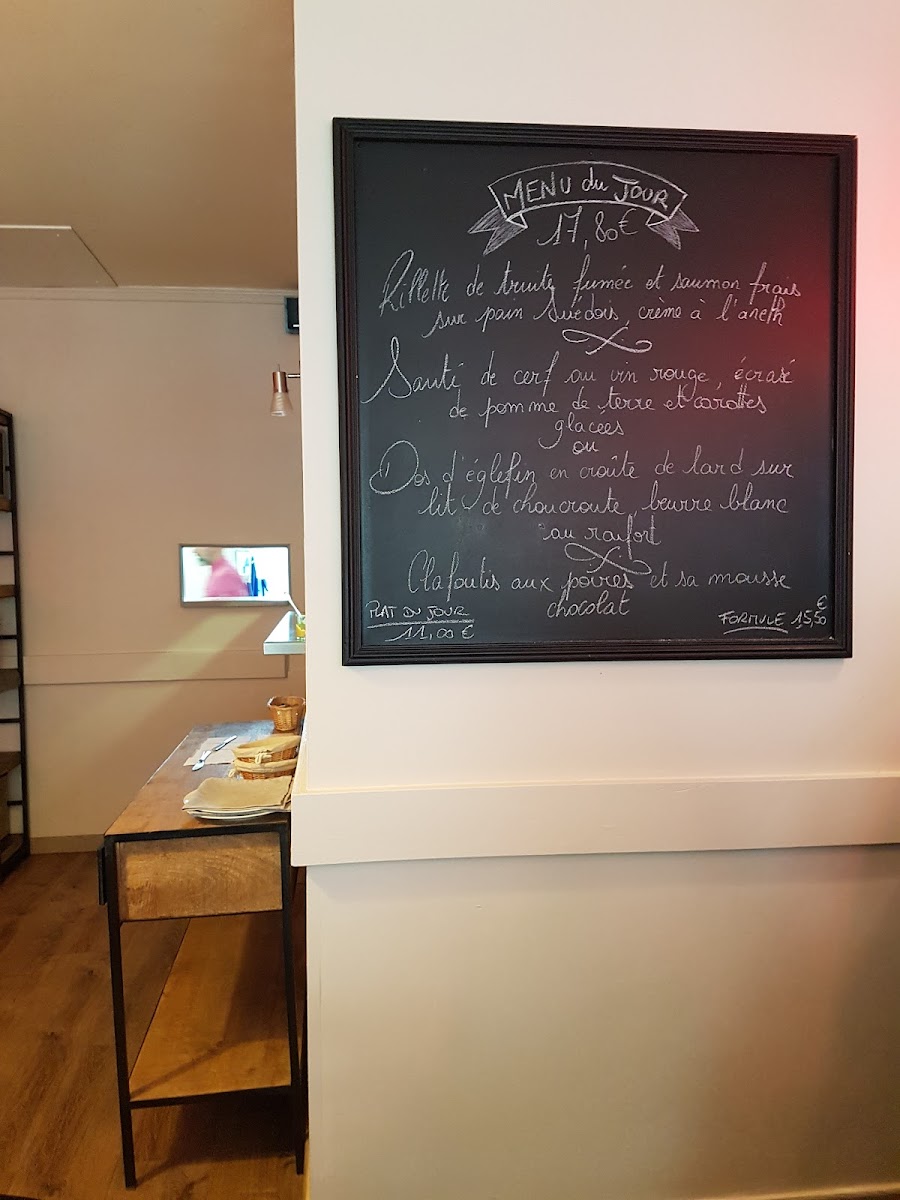 MENU du JOUR
17,80€
Rillette de truite fumée et saumon frais
sur pain Suédois, crème à l'aneth
Sauté de cerf au vin rouge, écrasé
de pomme de terre et carottes
glacées
ou
Dos d'églefin en croûte de lard sur
lit de choucroute, beurre blanc
au raifort
Clafoutis aux poires et sa mousse
chocolat
PLAT DU JOUR
11,00 €
FORMULE 15,50 €